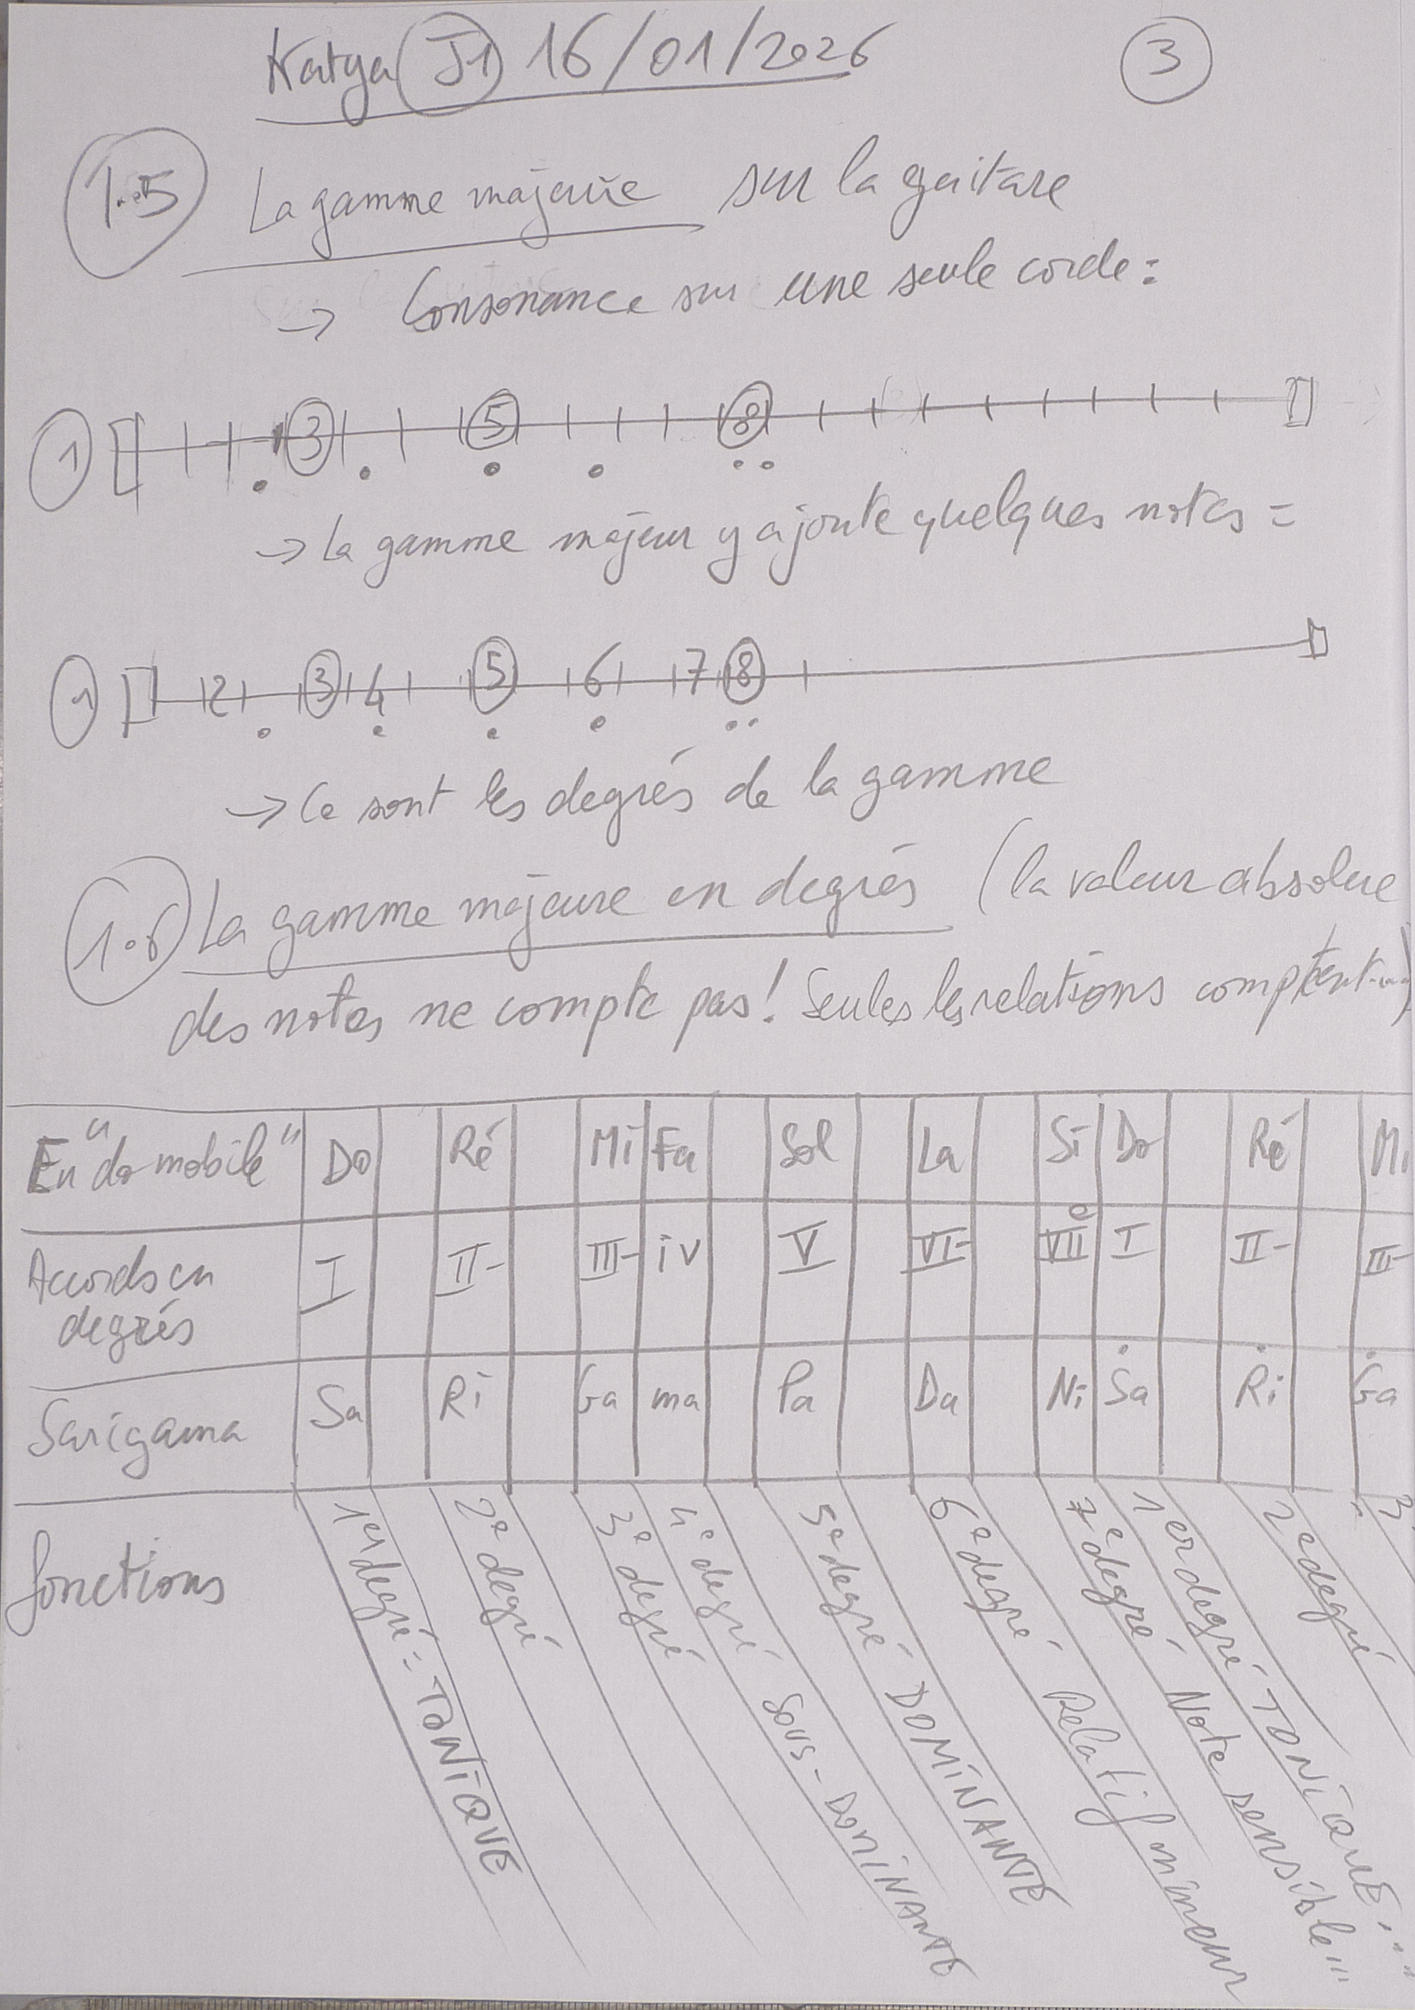 Katya J1 16/01/2026 3
1.5 La gamme majeure sur la guitare
→ Consonance sur une seule corde :
1 3 5 8
→ la gamme majeur y ajoute quelques notes =
1 2 3 4 5 6 7 8
→ Ce sont les degrés de la gamme
1.6 La gamme majeure en degrés (la valeur absolue
des notes ne compte pas! Seules les relations comptent...)
En "do mobile" Do Ré Mi Fa Sol La Si Do Ré Mi
Accords en degrés I II- III- iv V VI- VII° I II- III-
Sarigama Sa Ri Ga ma Pa Da Ni Ṡa Ṙi Ġa
fonctions
1er degré = TONIQUE
2e degré
3e degré
4e degré SOUS-DOMINANTE
5e degré DOMINANTE
6e degré Relatif mineur
7e degré Note sensible...
1er degré TONIQUE...
2e degré
3